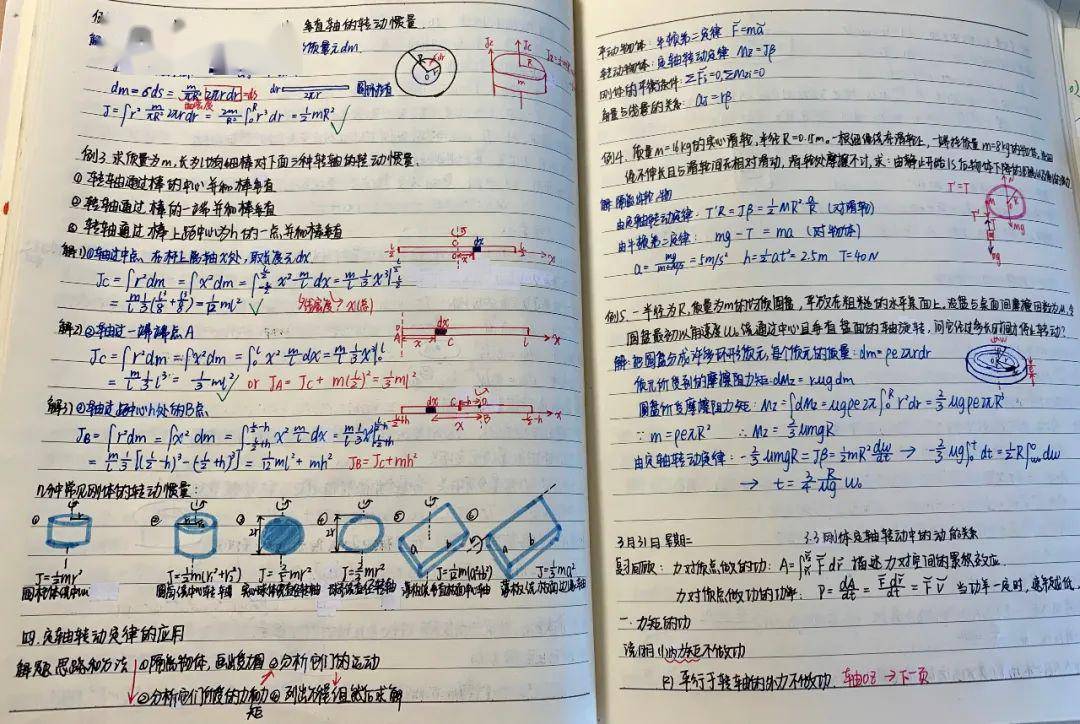 垂直轴的转动惯量
质量元dm.
dm=σds=m/πR² 2πrdr=ds
面密度
J=∫r² m/πR² 2πrdr = 2m/R² ∫₀ᴿ r³dr = 1/2 mR²
dr
2πr
例3. 求质量为m,长为l均匀细棒对下面三种转轴的转动惯量.
① 转轴通过棒的中心并和棒垂直
② 转轴通过棒的一端并和棒垂直
③ 转轴通过棒上距中心为h的一点并和棒垂直
解:1)①轴过中点,在棒上离轴x处,取质量元dx
Jc=∫r²dm=∫x²dm=∫x² m/l dx = m/l 1/3 x³
= m/l 1/3 (l³/8 + l³/8) = 1/12 ml²
解2) ②轴过一端端点A
Jc=∫r²dm=∫x²dm=∫₀ˡ x² m/l dx = m/l 1/3 x³|₀ˡ
= m/l 1/3 l³ = 1/3 ml² or J_A = Jc + m(l/2)² = 1/3 ml²
解3) ③轴过距中心h处的B点
J_B=∫r²dm=∫x²dm=∫x² m/l dx = m/l 1/3 x³
= m/l 1/3[(l/2-h)³-(-l/2+h)³] = 1/12 ml² + mh² J_B=Jc+mh²
几种常见刚体的转动惯量:
① ② ③ ④ ⑤ ⑥
J=1/2 mr² J=1/2 m(r₁²+r₂²) J=2/5 mr² J=2/3 mr² J=1/12 m(a²+b²) J=1/3 ma²
四. 定轴转动定律的应用
解题思路和方法 ①隔离物体,画受力图 ③分析它们的运动
②分析它们所受的力和力矩 ④列出方程组然后求解
平动物体: 牛顿第二定律 F=ma
转动物体: 定轴转动定律 Mz=Jβ
刚体的平衡条件: ΣFi=0, ΣMzi=0
角量与线量的关系: aτ=rβ
例4. 质量M=16kg的实心滑轮,半径R=0.15m. 一根细绳绕在滑轮上,一端挂质量m=8kg的物体,
绳不伸长且与滑轮间无相对滑动,滑轮处摩擦不计,求:由静止开始1s后物体下降的
解: 隔离滑轮、物
由定轴转动定律: T'R=Jβ=1/2 MR² a/R (对滑轮)
由牛顿第二定律: mg-T=ma (对物体)
a= =5m/s² h=1/2 at²=2.5m T=40N
T'=T
例5. 一半径为R,质量为m的均质圆盘,平放在粗糙的水平桌面上,设盘与桌面间摩擦因数为μ,令
圆盘最初以角速度ω₀绕通过中心且垂直盘面的轴旋转,问它经过多长时间才停止转动?
解: 把圆盘分成许多环形质元,每个质元的质量: dm=ρe2πrdr
质元所受到的摩擦阻力矩: dMz=rμgdm
圆盘所受摩擦阻力矩: Mz=∫dMz=μgρe2π∫₀ᴿ r²dr=2/3 μgρeπR³
∵ m=ρeπR² ∴ Mz=2/3 μmgR
由定轴转动定律: -2/3 μmgR=Jβ=1/2 mR² dω/dt → -2/3 μg∫₀ᵗ dt=1/2 R∫dω
→ t=3/4 R/μg ω₀
3月31日 星期二 3.3 刚体定轴转动中的功能关系
复习回顾: 力对质点做的功: A=∫F dr 描述力对空间的累积效应.
力对质点做功的功率: P=dA/dt=F dr/dt=F v 当功率一定时,
一. 力矩的功
说明: (1)内力矩不做功
(2) 平行于转轴的外力不做功. 车轴OZ →下一页